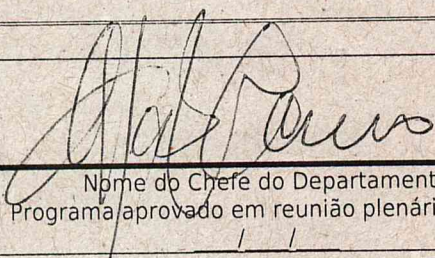 Nome do Chefe do Departament
Programa aprovado em reunião plenári
/ /